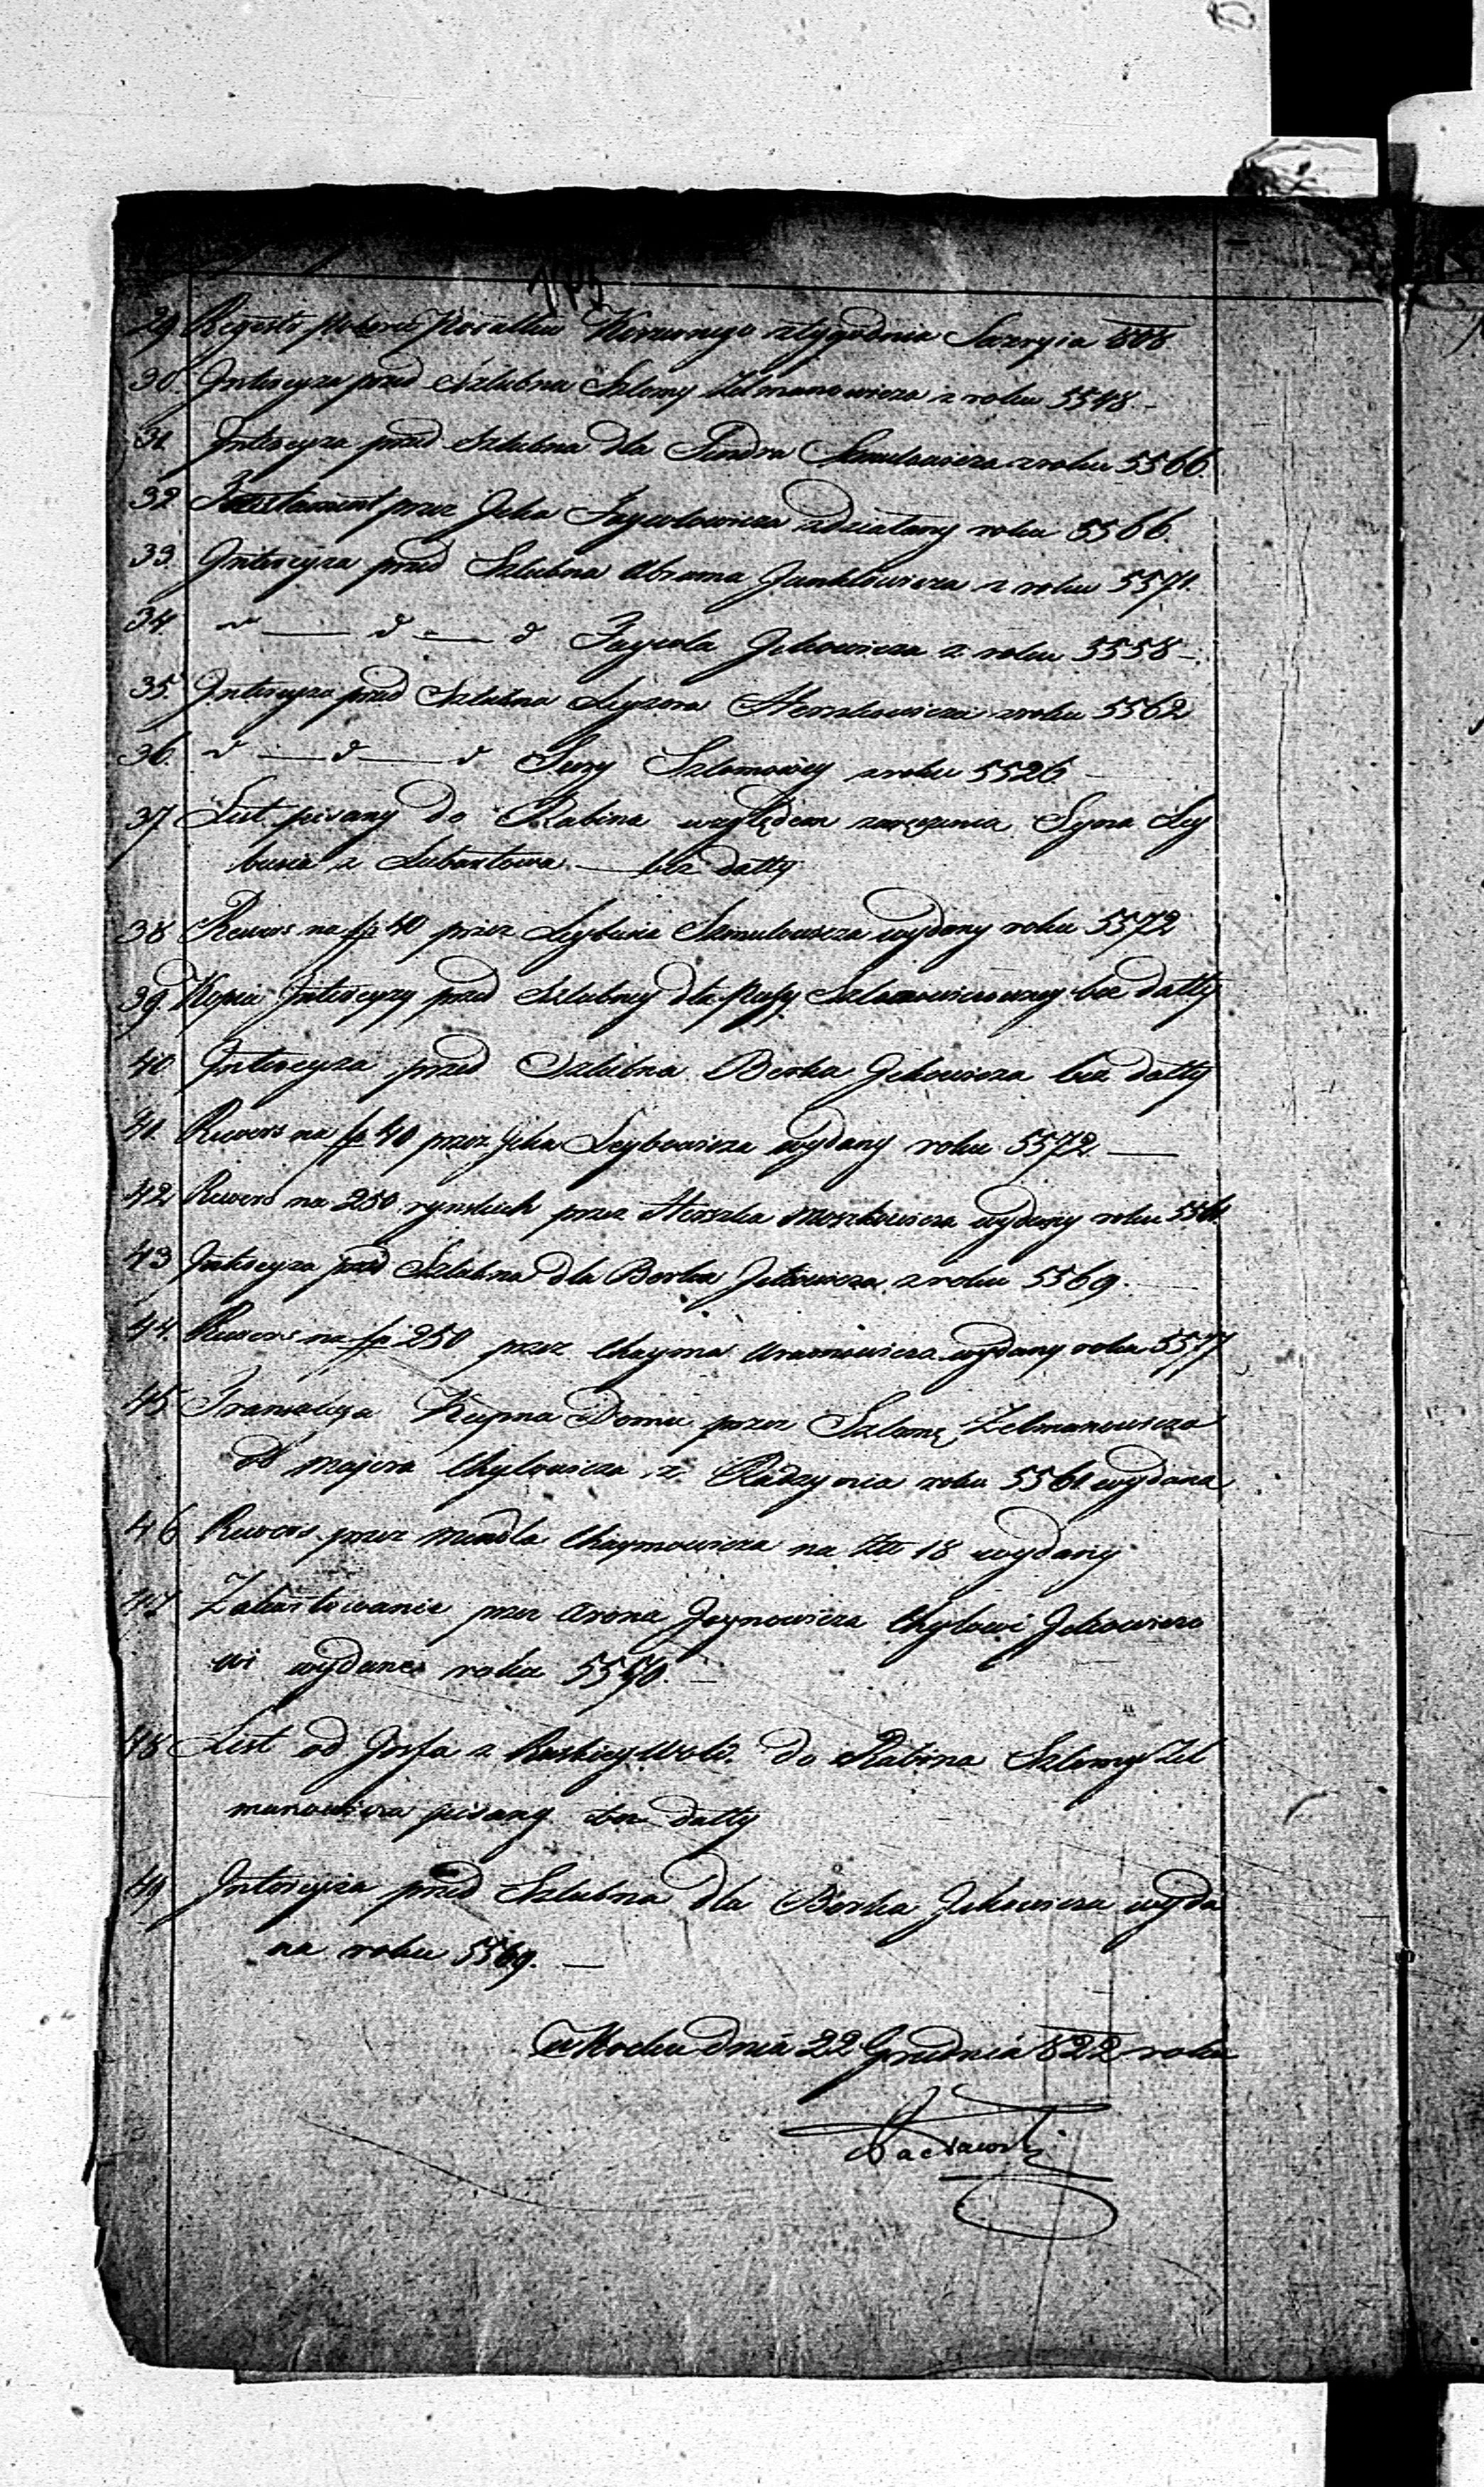 29. Regestr poboru Posatku Koszernego z tygodnia Sazryia 808
30. Intercyza przed Szlubna Szlomy Zelmanowicza z roku 5548. –
31 Intercyza przed Szlubna dla Pindra Szmulowicza z roku 5566.
32 Testament przez Jcka Faywlowicza zdziałany roku 5566.
33. Intercyza przed Szlubna Abrama Jankielowicza z roku 5571.
34. d — d — d Faywla Jckowicza z roku 5558 –
35. Intercyza przed Szlubna Leyzora Herszkowicza z roku 5562
36. d — d — d Sury Szlomowey z roku 5526 —
37 List pisany do Rabina względem zaręczenia Syna Ley
busia z Lubartowa. — bez datty
38 Rewers na fp 40 przez Leybusia Szmulowicza wydany roku 5572
39. Kopia Intercyzy przed Szlubney dla Szlomowiczowney bez datty
40 Intercyza przed Szlubna Berka Jckowicza bez datty
41. Rewers na fp 40 przez Jcka Leybowicza wydany roku 5572 —
42 Rewers na 250 rynskich przez Herszka Moszkowicza wydany roku
43 Intercyza przed Szlubna dla Berka Jckowicza z roku 5569. —
44. Rewers na fp 250 przez Chayma Aramowicza wydany roku 5577
45 Tranzakcya Kupna Domu przez Szlomę Zelmanowicza
od Majera Chylowicza z Radzynia roku 5561 wydana
46 Rewers przez Mendla Chaymowicza na Złt 18 wydany
47 Zakwitowanie przez Arona Chylowi Jckowiczo
wi wydane roku 5570. —
48 List od Josfa z Ruskiey Woli do Rabina Szlomy Zel
manowicza pisany bez datty
49 Intercyza przed Szlubna dla Berka Jckowicza wyda
na roku 5569. —
w Kocku dnia 22 Grudnia 822 roku